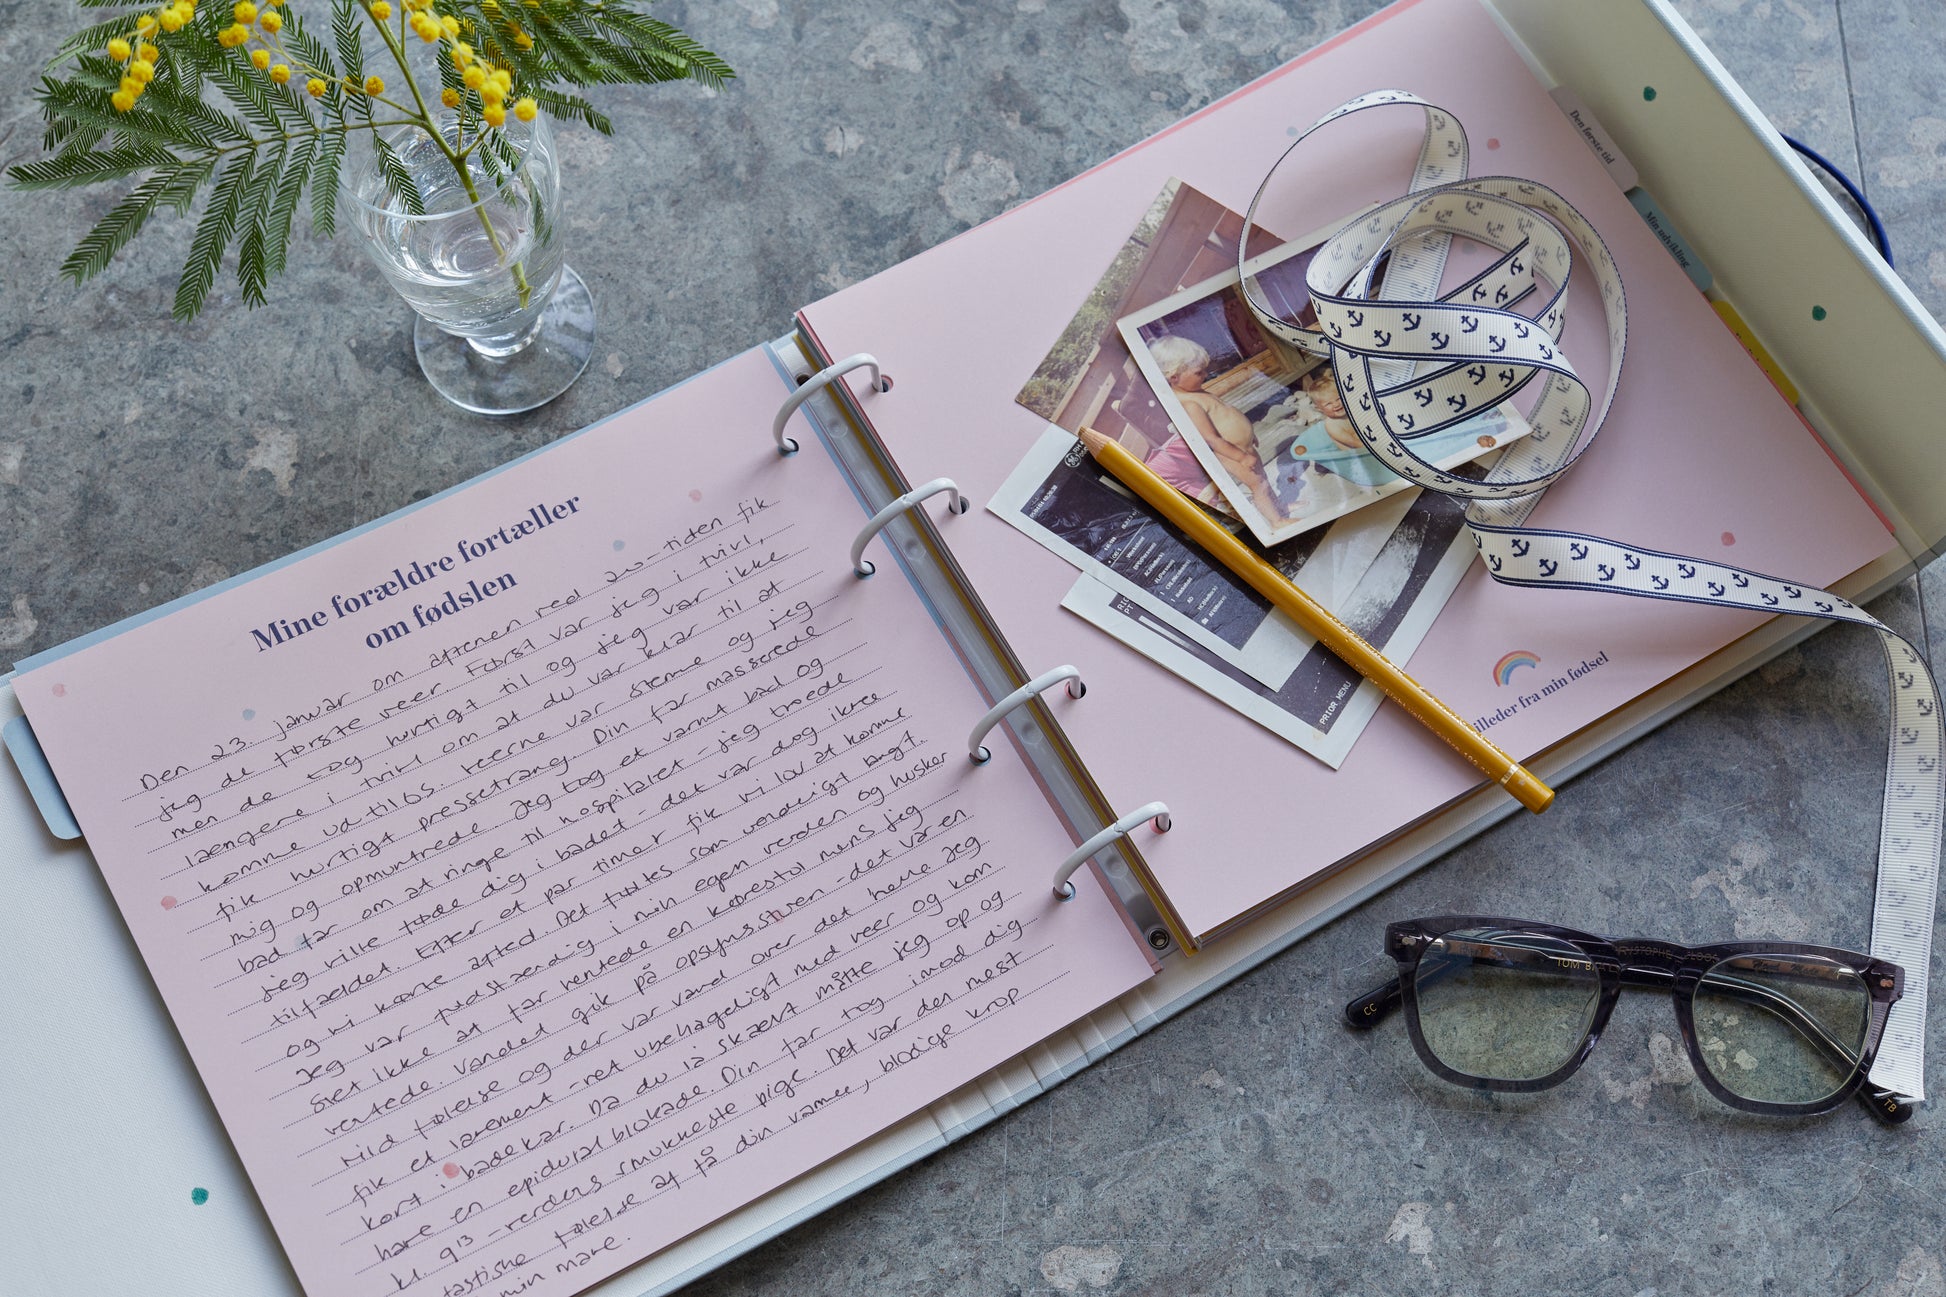 Mine forældre fortæller
om fødslen
Den 23. januar om aftenen ved 20-tiden fik
jeg de første veer. Først var jeg i tvivl,
men de tog hurtigt til og jeg var ikke
længere i tvivl om at du var klar til at
komme ud til os. Veerne var stemme og jeg
fik hurtigt pressetrang. Din far masserede
mig og opmuntrede. Jeg tog et varmt bad og
bad far om at ringe til hospitalet - jeg troede
jeg ville føde dig i badet - det var dog ikke
tilfældet. Efter et par timer fik vi lov at komme
og vi kørte afsted. Det føltes som vanvittigt langt.
Jeg var fuldstændig i min egen verden og husker
slet ikke at far hentede en kørestol mens jeg
ventede. Vandet gik på opsynsstuen - det var en
vild følelse og der var vand over det hele. Jeg
fik et lavement - ret ubehageligt med veer og kom
kort i badekar. Da du lå skævt måtte jeg op og
have en epidural blokade. Din far tog imod dig
kl. 9¹³ - verdens smukkeste pige. Det var den mest
fantastiske følelse af få din varme, blodige krop
min mave.
Den første tid
Min udvikling
PRIOR MENU
illeder fra min fødsel
TOM
CC
TB